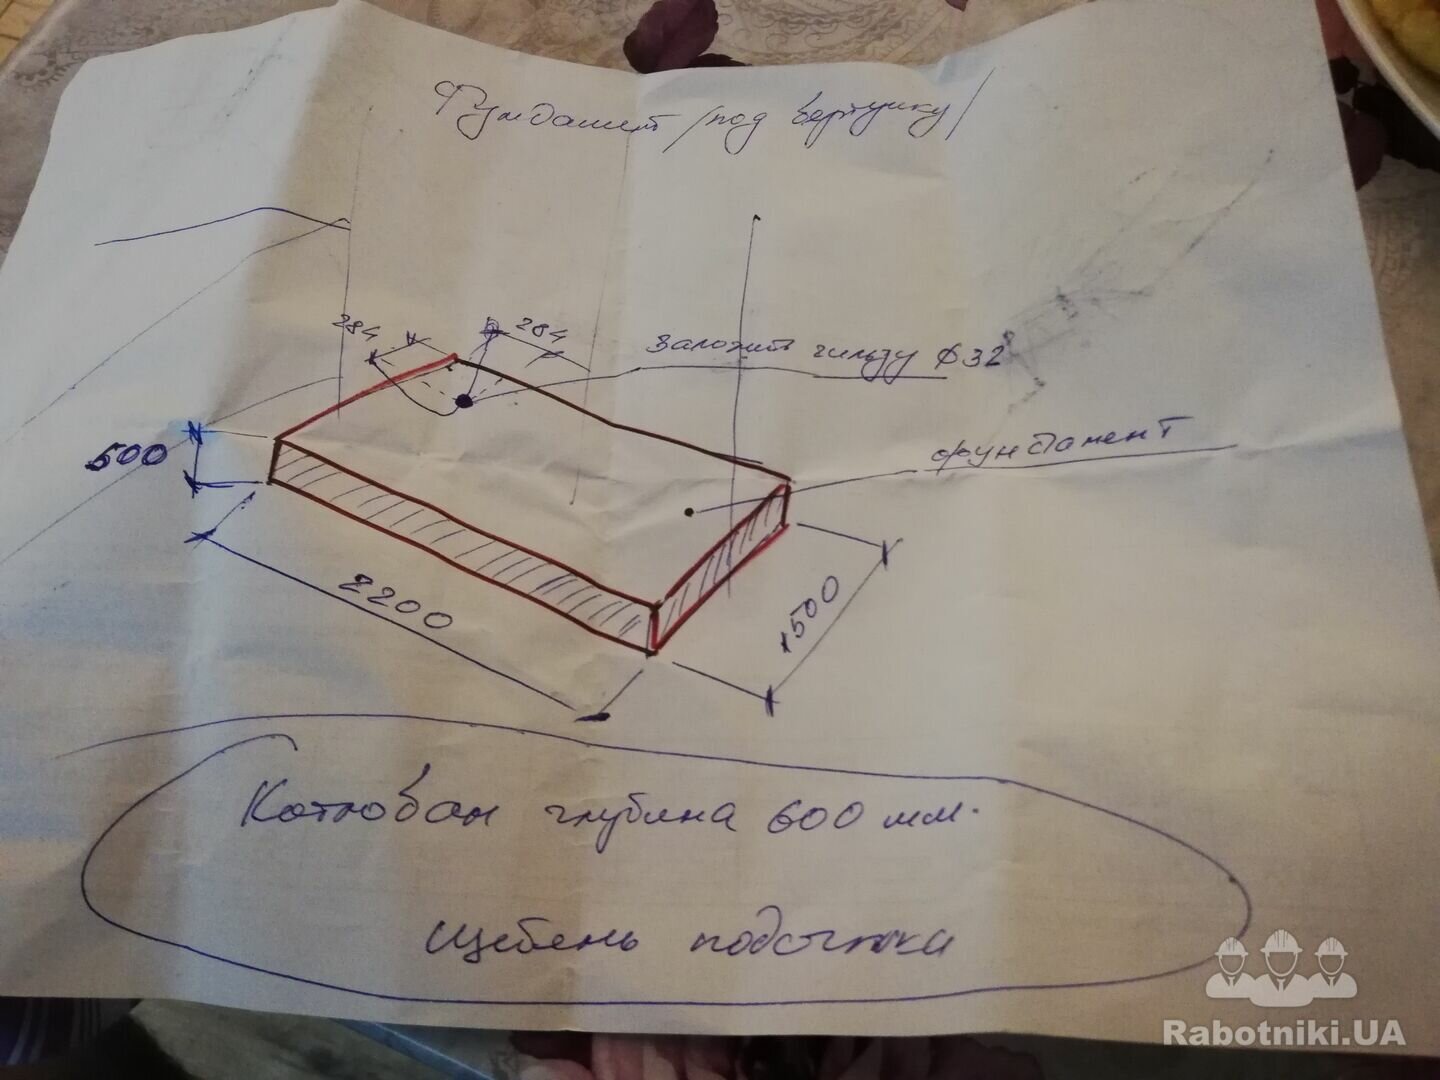 Фундамент /под вертушку/
284
284
Заложить гильзу Ø32
500
фундамент
2200
1500
Котлован глубина 600 мм.
Щебень подсыпка
Rabotniki.UA